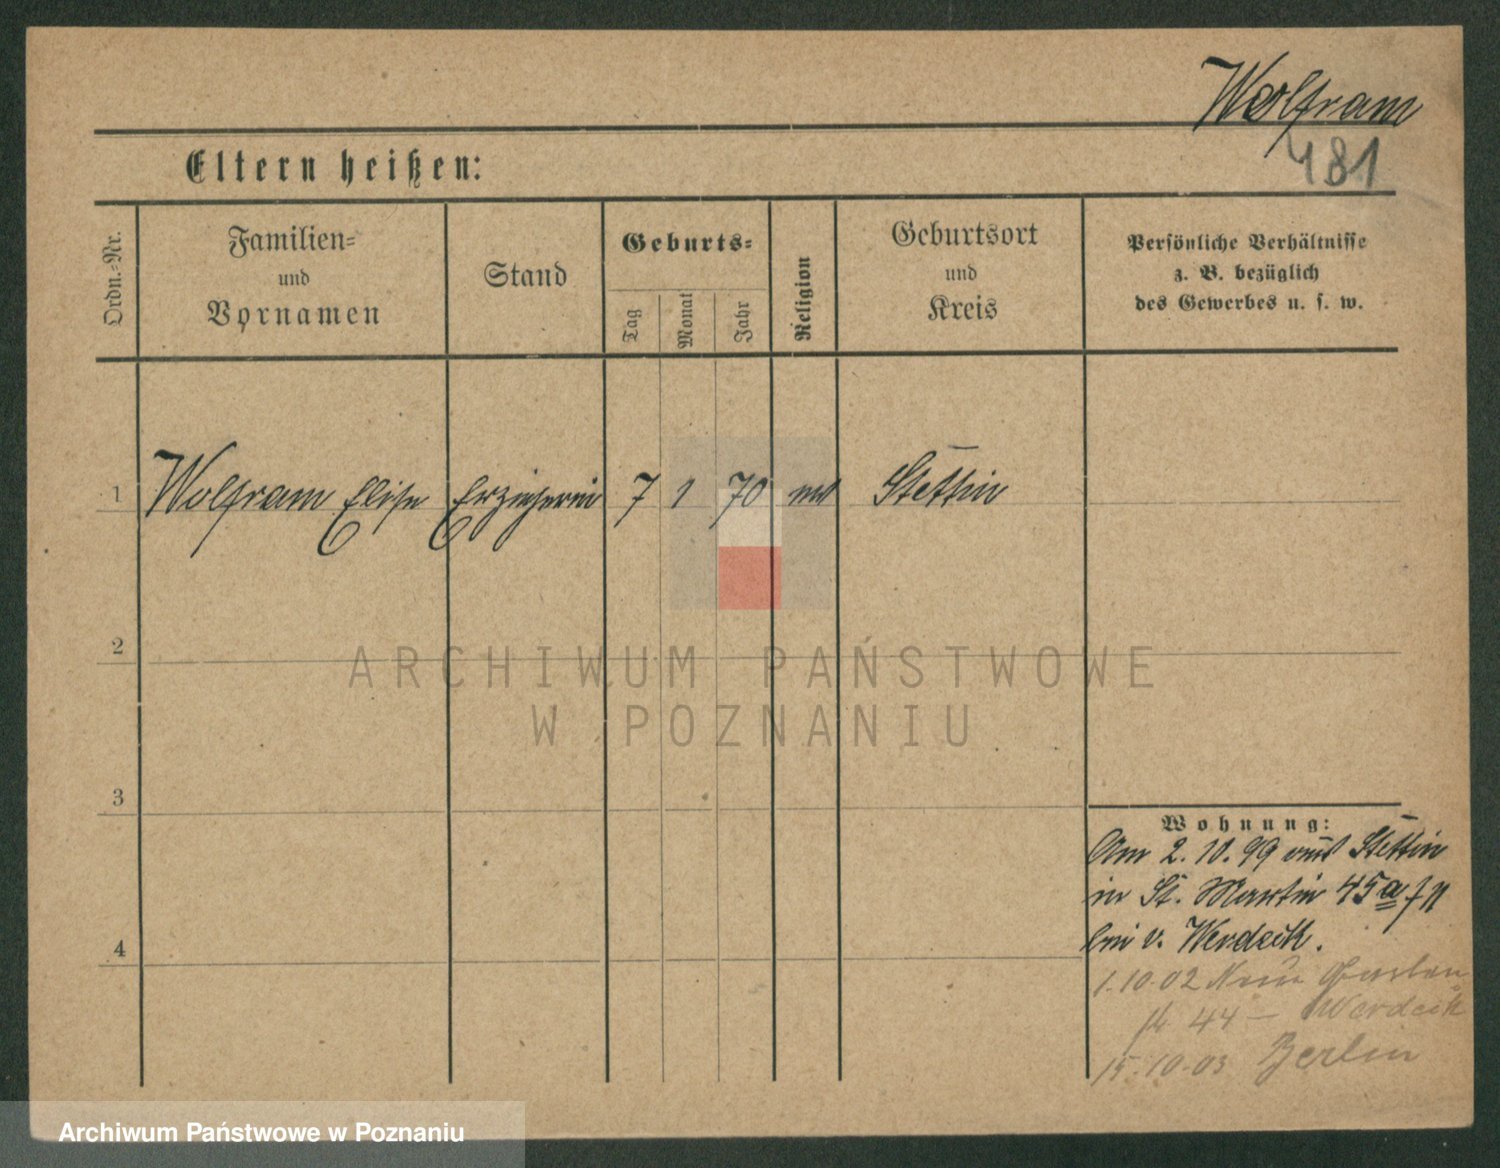 Wolfram
481
Eltern heißen:
Ordn.=Nr.
Familien=
und
Vornamen
Stand
Geburts=
Tag
Monat
Jahr
Religion
Geburtsort
und
Kreis
Persönliche Verhältnisse
z. B. bezüglich
des Gewerbes u. s. w.
1 Wolfram Elise Erzieherin 7 1 70 Stettin
2
ARCHIWUM PAŃSTWOWE
W POZNANIU
3
Wohnung:
Am 2. 10. 99 aus Stettin
in St. Martin 45a
bei v. Werdeck.
4
1.10.02 Neue Garten
44 – Werdeck
15.10.03 Berlin
Archiwum Państwowe w Poznaniu